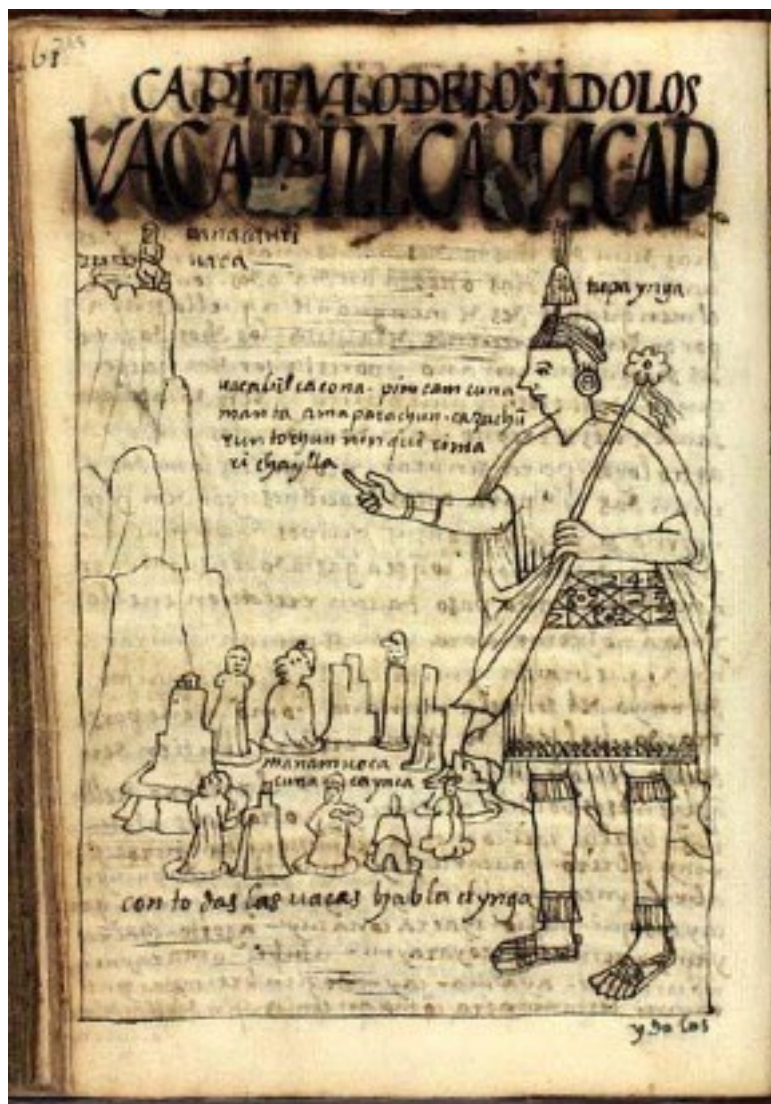 CAPÍTVLODELOSÍDOLOS
VACABILLCAÍNCAP
uanacauri
uaca
topa ynga
uacabilcacona. pim camcuna
manta ama parachun. cazachū
runtochun ninqui rima
ri chaylla
manam uaca
cuna cayaca
con todas las uacas habla el ynga
ydolos